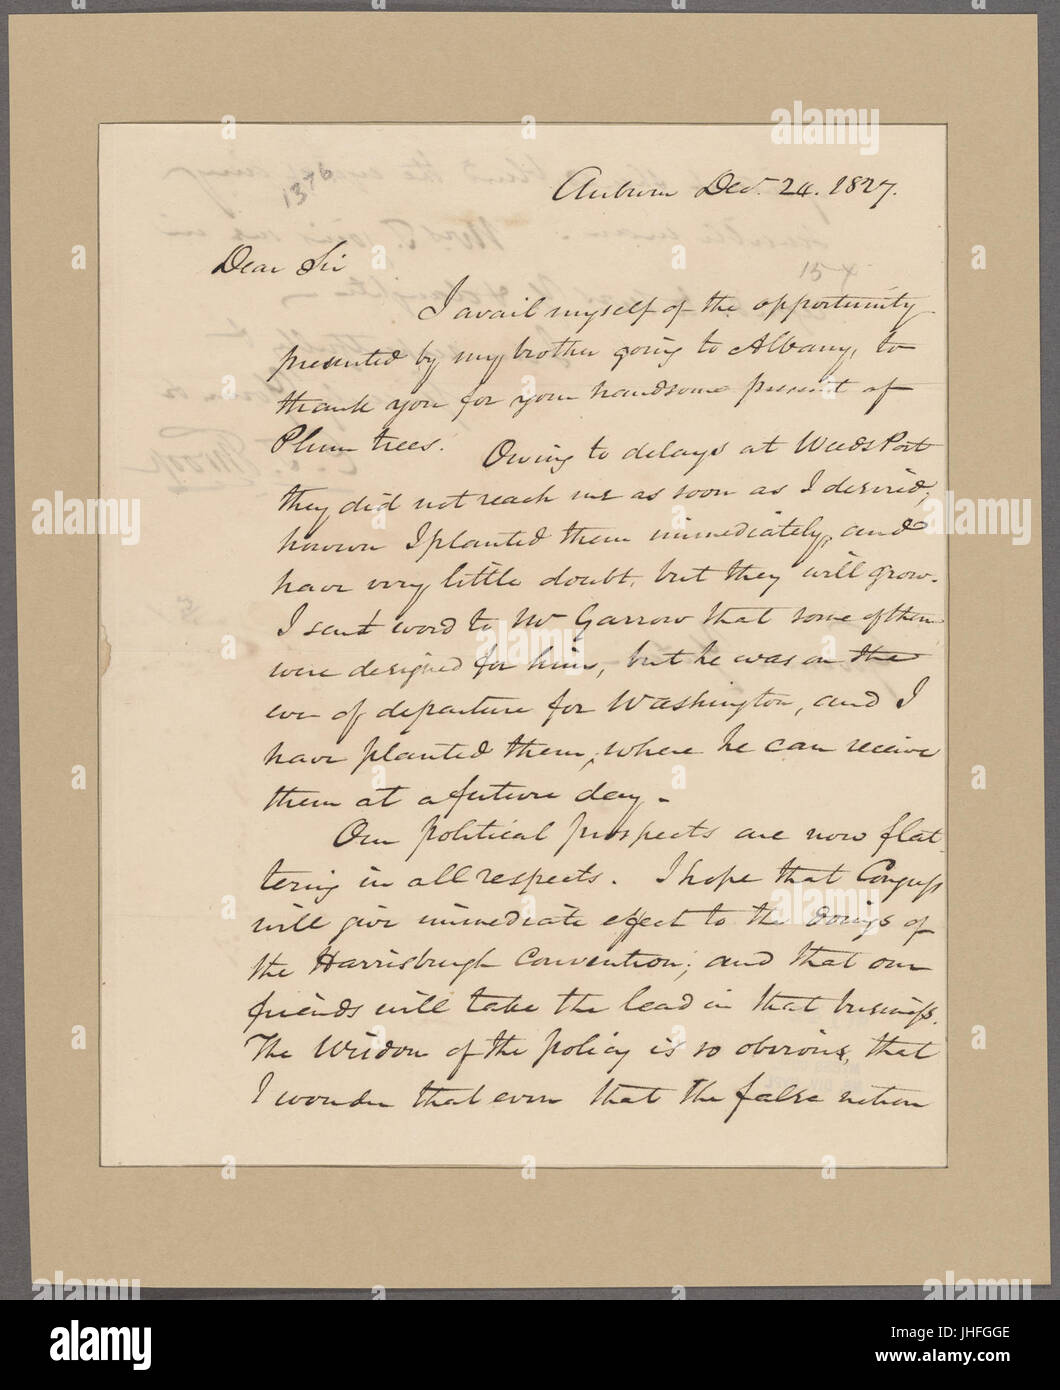 1376
Auburn Decr. 24. 1827.
Dear Sir
154
I avail myself of the opportunity
presented by my brother going to Albany, to
thank you for your handsome present of
Plum trees. Owing to delays at Weeds Port
they did not reach me as soon as I desired;
however I planted them immediately, and
have very little doubt, but they will grow.
I sent word to Mr Garrow that some of them
were designed for him, but he was on the
eve of departure for Washington, and I
have planted them, where he can receive
them at a future day.
Our political prospects are now flat-
tering in all respects. I hope that Congress
will give immediate effect to the doings of
the Harrisburgh Convention; and that our
friends will take the lead in that business.
The Wisdom of the policy is so obvious, that
I wonder that even that the false notion
alamy stock photo
a alamy
alamy
Image ID: JHFGGE
www.alamy.com